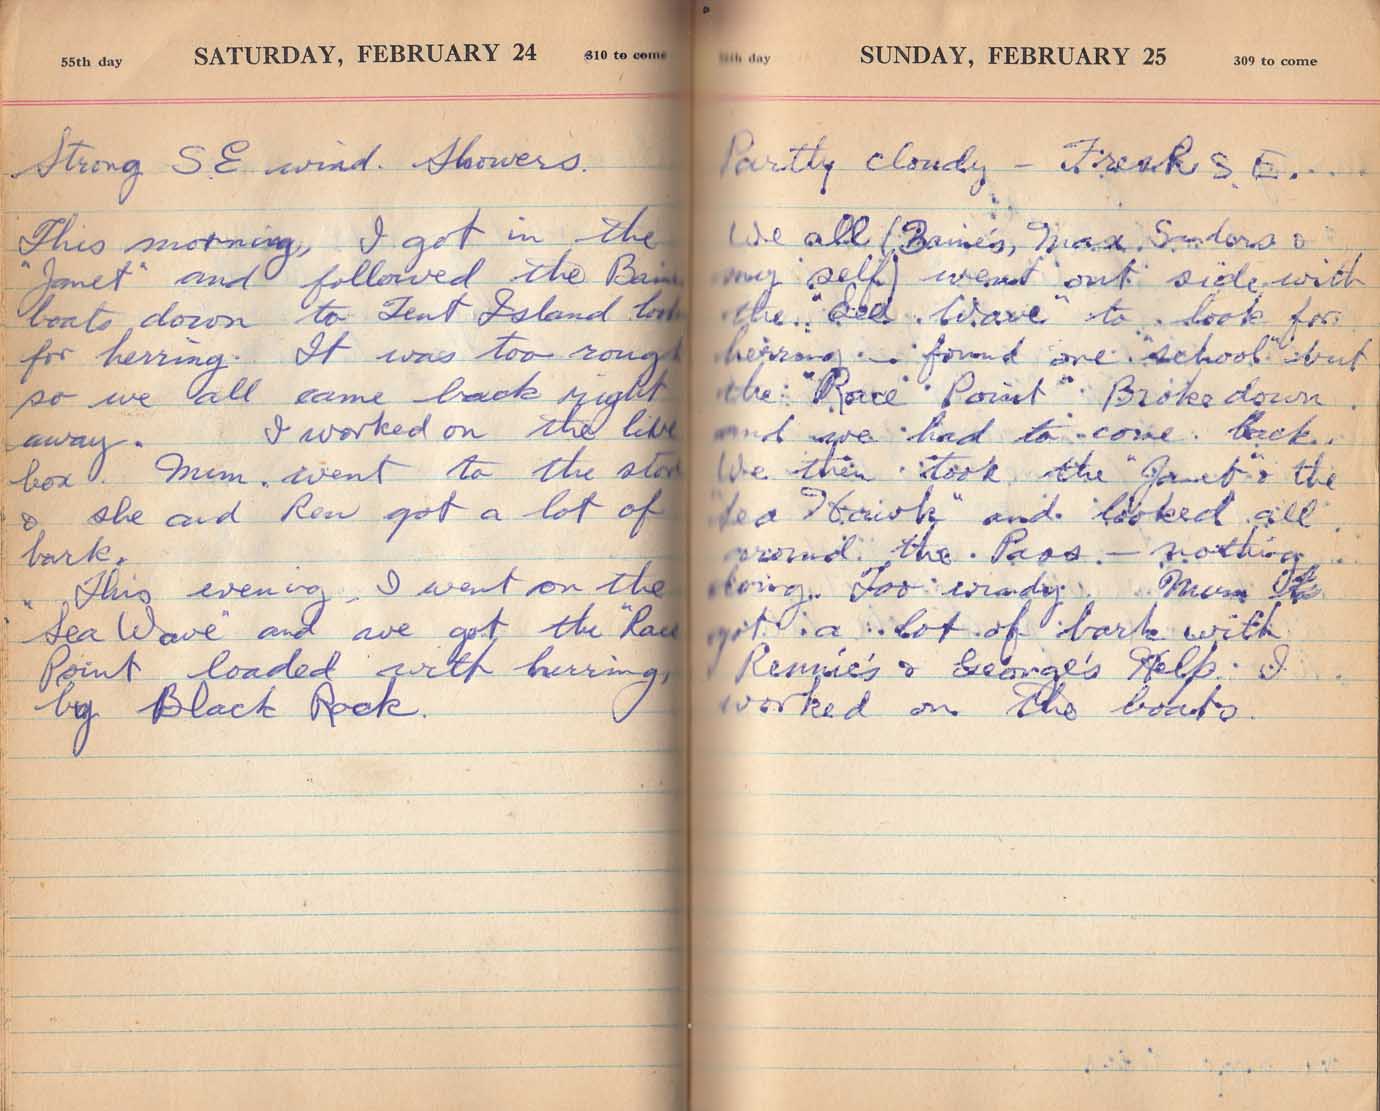 55th day SATURDAY, FEBRUARY 24 310 to come
Strong S.E. wind. Showers.
This morning, I got in the
"Janet" and followed the
boats down to Tent Island
for herring. It was too rough
so we all came back right
away. I worked on the live
box. Mum went to the store
& she and Ren got a lot of
bark.
This evening, I went on the
"Sea Wave" and we got the "Race
Point loaded with herring,
by Black Rock.
day SUNDAY, FEBRUARY 25 309 to come
Partly cloudy – Fresh S.E.
We all (Baine's, Max &
my self) went out side with
the "Sea Wave" to look for
herring – found one "school" but
the "Race Point" Broke down
and we had to come back.
We then took the "Janet" & the
"Sea Hawk" and looked all
around the Pass – nothing
doing. Too windy. Mum
got a lot of bark with
Rennie's & George's Help. I
worked on the boats.